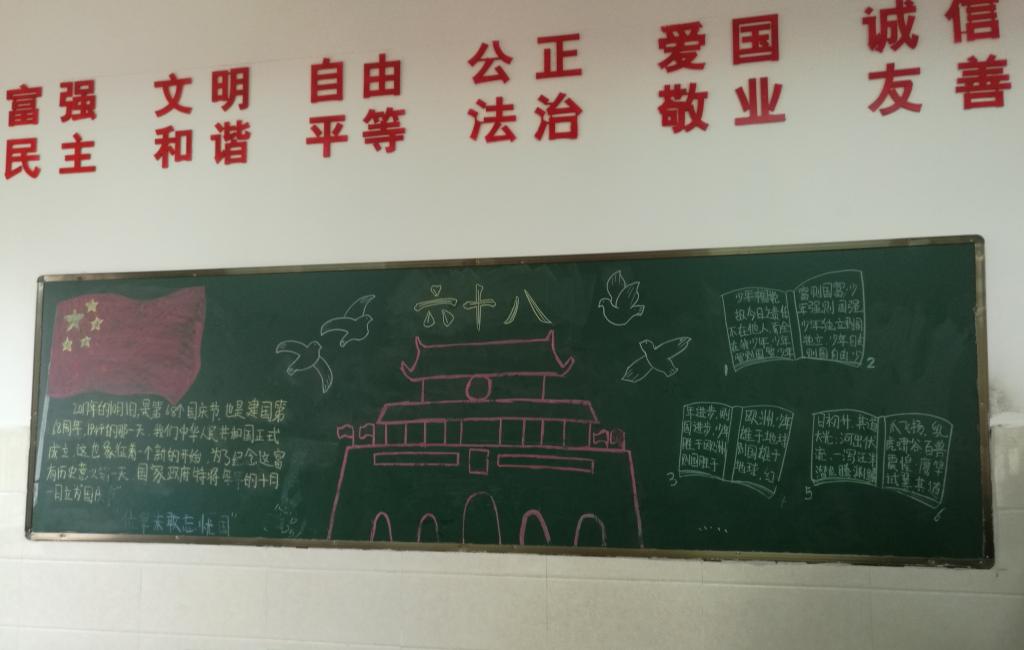 富强 文明 自由 公正 爱国 诚信
民主 和谐 平等 法治 敬业 友善
六十八
2017年的10月1日,是第68个国庆节也是建国第
68周年,1949年的那一天,我们中华人民共和国正式
成立,这也象征着一个新的开始,为了纪念这富
有历史意义的一天,国家政府特将每年的十月
一日立为国庆
未敢忘忧国"
少年
担今日之责任
不在他人,而全
在我少年,少年
智则国智,少年
1
富则国富,少
年强则国强
少年独立则国
独立,少年自由
则国自由,少
2
年进步,则
国进步,少年
胜于欧洲
则国胜于
3
欧洲,少年
雄于地球
则国雄于
地球,红
日初升,其道
大光;河出伏
流,一泻汪洋
潜龙腾渊,鳞
5
爪飞扬,乳
虎啸谷,百兽
震惶,鹰隼
试翼,
6